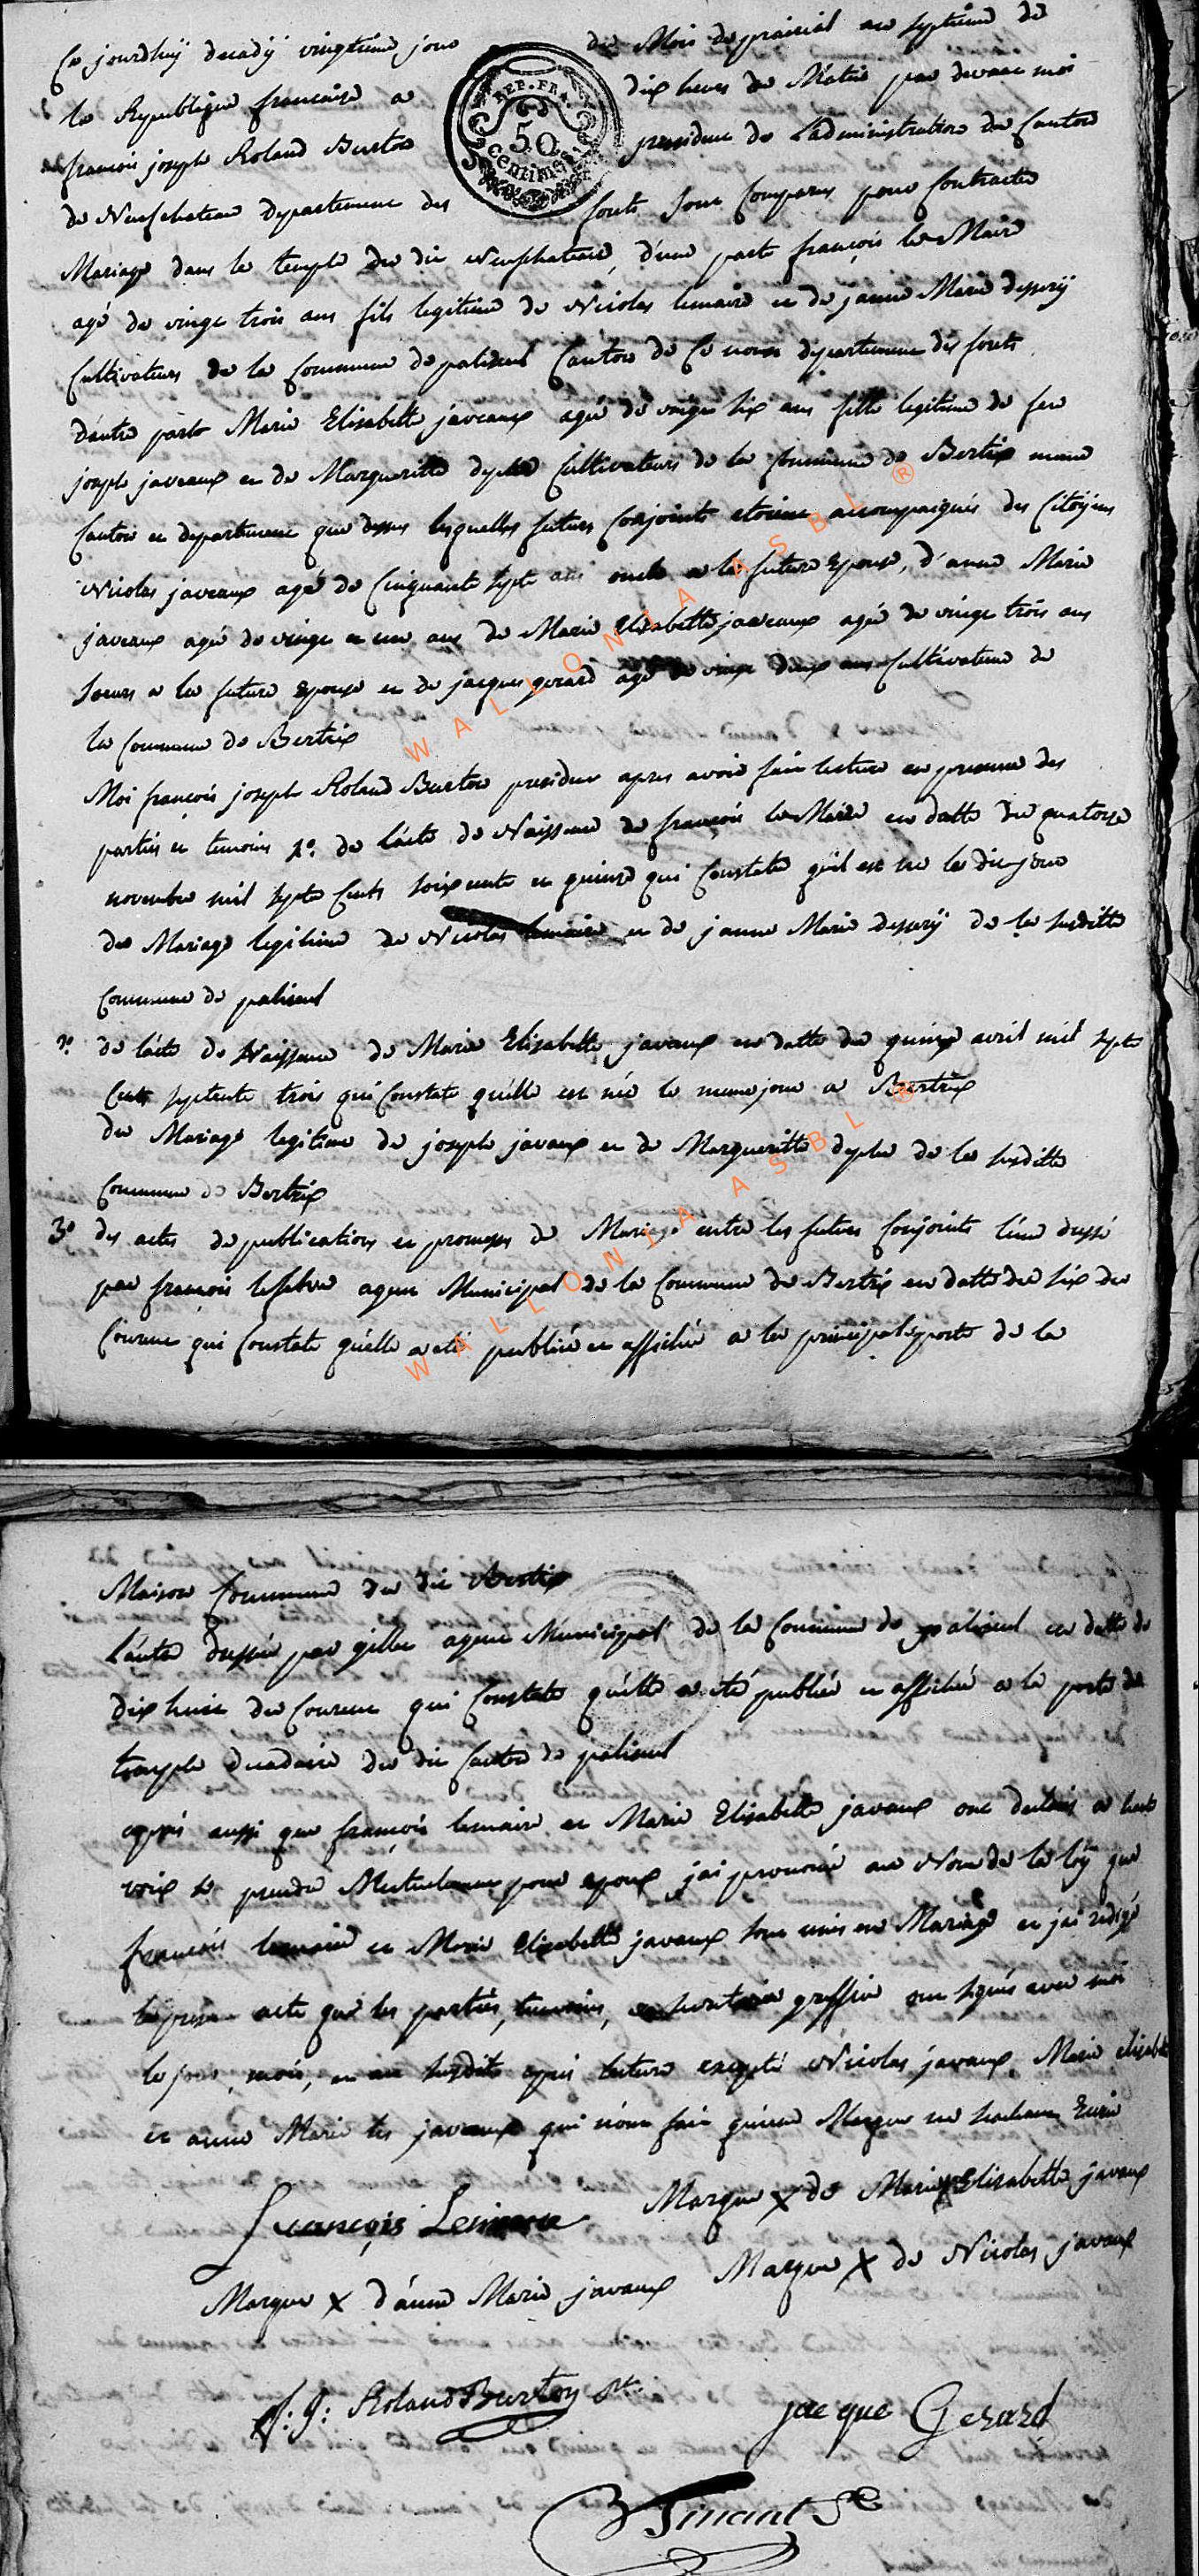 Ce jourdhuy decady vingtieme jour du Mois de prairial an septieme de
la Republique francaise a dix heures du Matin par devant moi
REP. FRA.
50
centimes
francois joseph Roland Burton president de L'administration du Canton
de Neufchateau departement des forêts sont Comparus pour Contracter
Mariage dans le temple du dit Neufchateau, d'une part françois le Maire
agé de vingt trois ans fils legitime de Nicolas lemaire et de jeanne Marie
Cultivateurs de la Commune de paliseul Canton de Ce nom departement des forêts
d'autre part Marie Elisabette javeaux agée de vingt six ans fille legitime de feu
joseph javeaux et de Margueritte Cultivateurs de la Commune de Bertrix meme
Canton et departement que dessus lesquelles futurs Conjoints etoient accompagnés des Citoÿens
Nicolas javeaux agé de Cinquante sept ans oncle a la future Epouse, d'anne Marie
javeaux agée de vingt et un ans de Marie Elisabette javeaux agée de vingt trois ans
soeurs a la future epouse et de jacques gerard agé de vingt deux ans Cultivateur de
la Commune de Bertrix
Moi françois joseph Roland Burton president apres avoir fait lecture en presence des
parties et temoins 1º. de l'acte de Naissance de françois le Maire en datte du quatorze
novembre mil sept Cents soixante et quinze qui Constate qu'il est né le dit jour
du Mariage legitime de Nicolas lemaire et de jeanne Marie de la susditte
Commune de paliseul
2º de l'acte de Naissance de Marie Elisabette javaux en datte du quinze avril mil sept
Cents septente trois qui Constate qu'elle est née le meme jour a Bertrix
du Mariage legitime de joseph javaux et de Margueritte de la susditte
Commune de Bertrix
3º des actes de publications et promesses de Mariage entre les futurs Conjoints l'une dressé
par françois lefebvre agent Municipal de la Commune de Bertrix en datte du six du
Courant qui Constate qu'elle a été publiée et affichée a la principale porte de la
WALLONIA ASBL ®
WALLONIA ASBL ®
Maison Commune du dit Bertrix
L'autre dressée par gille agent Municipal de la Commune de paliseul en datte du
dix huit du Courant qui Constate qu'elle a été publiée et affichée a la porte du
temple decadaire du dit Canton de paliseul
apres aussi que françois lemaire et Marie Elisabette javaux ont declarés a haute
voix se prendre Mutuellement pour epoux j'ai prononcé au Nom de la loÿ que
françois lemaire et Marie Elisabette javaux sont unis en Mariage et j'ai redigé
le present acte que les parties, temoins, et secretaire greffier ont signés avec moi
le jour, mois, et an susdits apres lecture excepté Nicolas javaux, Marie elisabette
et anne Marie les javaux qui n'ont fait qu'une Marque ne sachant Ecrire
françois Lemaire Marque X de Marie Elisabette javaux
Marque X d'anne Marie javaux Marque X de Nicolas javaux
f: J: Roland Burton pt. jacque Gerard
Tinant